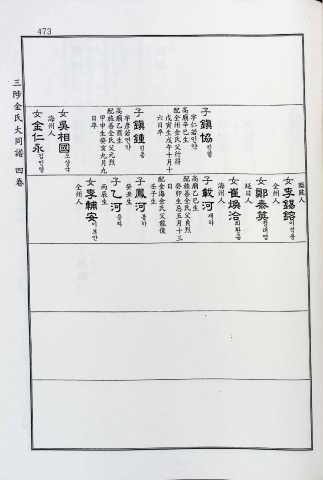 473
三陟金氏大同譜 四卷
子鎭協 진협
字仁若인약
高廟辛巳生
配全州金氏父行得
戊寅生戊年十月十
六日卒
子鎭鍾 진종
字彦若언약
高廟乙酉生
配慈善金氏父元烈
甲申生癸亥九月九
日卒
女吳相國 오상국
海州人
女金仁永 김인영
臨陂人
女李錫鎔 이석용
全州人
女鄭泰英 정태영
延日人
女崔煥洽 최환흡
海州人
子載河 재하
高廟辛巳生
配慈善金氏父肖烈
癸卯生忌五月十三
日
配金海金氏父龍俊
壬子生
子鳳河 봉하
癸丑生
子乙河 을하
丙辰生
女李輔安 이보안
全州人